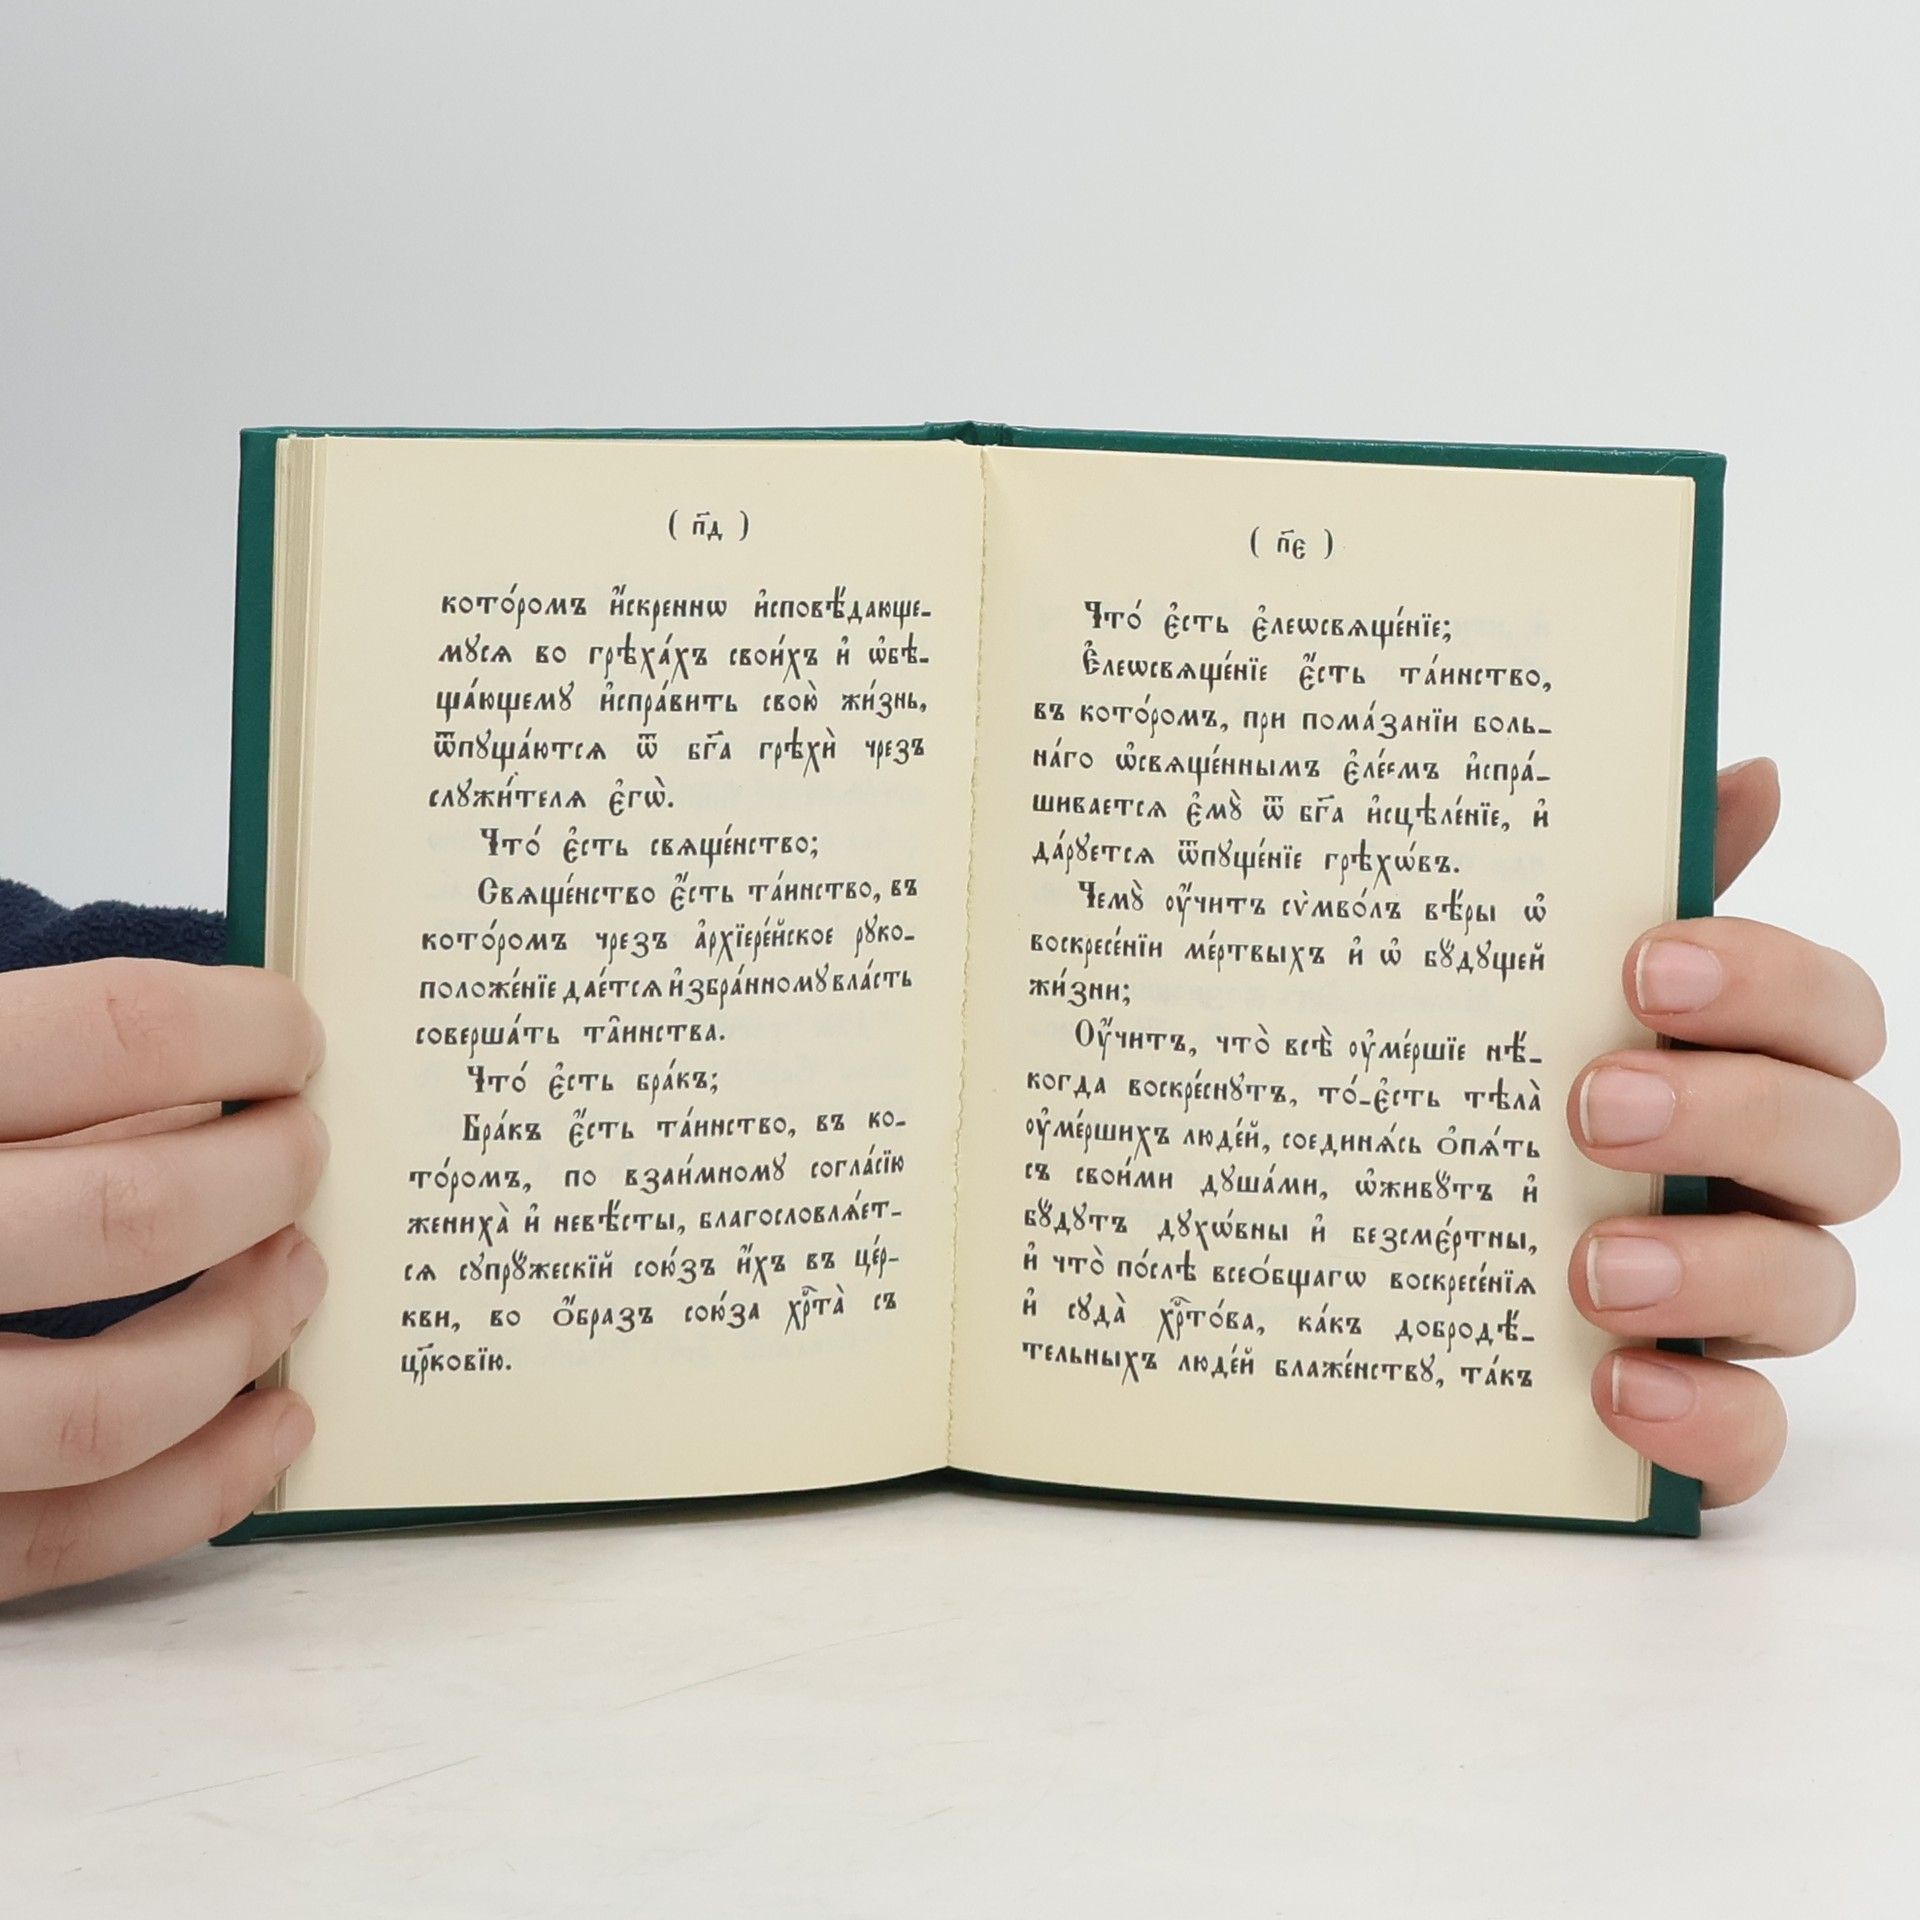 ( п҃д )
кото́ромъ и҆́скреннѡ и҆сповѣ́дающе-
мꙋсѧ во грѣха́хъ свои́хъ и҆ ѡ҆бѣ-
ща́ющемꙋ и҆спра́вить свою̀ жи́знь,
ѿпꙋща́ютсѧ ѿ бг҃а грѣхѝ чрезъ
слꙋжи́телѧ є҆гѡ̀.
Что́ є҆сть свѧще́нство;
Свѧще́нство є҆́сть та́инство, въ
кото́ромъ чрезъ а҆рхїере́йское рꙋко-
положе́нїе дае́тсѧ и҆збра́нномꙋ вла́сть
соверша́ть та̑инства.
Что́ є҆сть бра́къ;
Бра́къ є҆́сть та́инство, въ ко-
то́ромъ, по взаи́мномꙋ согла́сїю
жениха̀ и҆ невѣ́сты, благословлѧ́ет-
сѧ сꙋпрꙋ́жескїй сою́зъ и҆́хъ въ це́р-
кви, во ѻ҆́бразъ сою́за хрⷭ҇та̀ съ
цр҃ковїю.
( п҃є )
Что́ є҆сть є҆леѡсвѧще́нїе;
Є҆леѡсвѧще́нїе є҆́сть та́инство,
въ кото́ромъ, при пома́занїи боль-
на́го ѡ҆свѧще́ннымъ є҆ле́емъ и҆спра́-
шиваетсѧ є҆мꙋ̀ ѿ бг҃а и҆сцѣле́нїе, и҆
да́рꙋетсѧ ѿпꙋще́нїе грѣхѡ́въ.
Чемꙋ̀ ᲂу҆́читъ сѷмво́лъ вѣ́ры ѡ҆
воскресе́нїи ме́ртвыхъ и҆ ѡ҆ бꙋ́дꙋщей
жи́зни;
Оу҆́читъ, что̀ всѣ̀ ᲂу҆ме́ршїе нѣ́-
когда воскре́снꙋтъ, то́-є҆сть тѣла̀
ᲂу҆ме́ршихъ люде́й, соединѧ́сь ѻ҆пѧ́ть
съ свои́ми дꙋша́ми, ѡ҆живꙋ́тъ и҆
бꙋ́дꙋтъ дꙋхѡ́вны и҆ безсме́ртны,
и҆ что̀ по́слѣ всео́бщагѡ воскресе́нїѧ
и҆ сꙋда̀ хрⷭ҇то́ва, ка́къ добродѣ́-
тельныхъ люде́й блаже́нствꙋ, та́къ